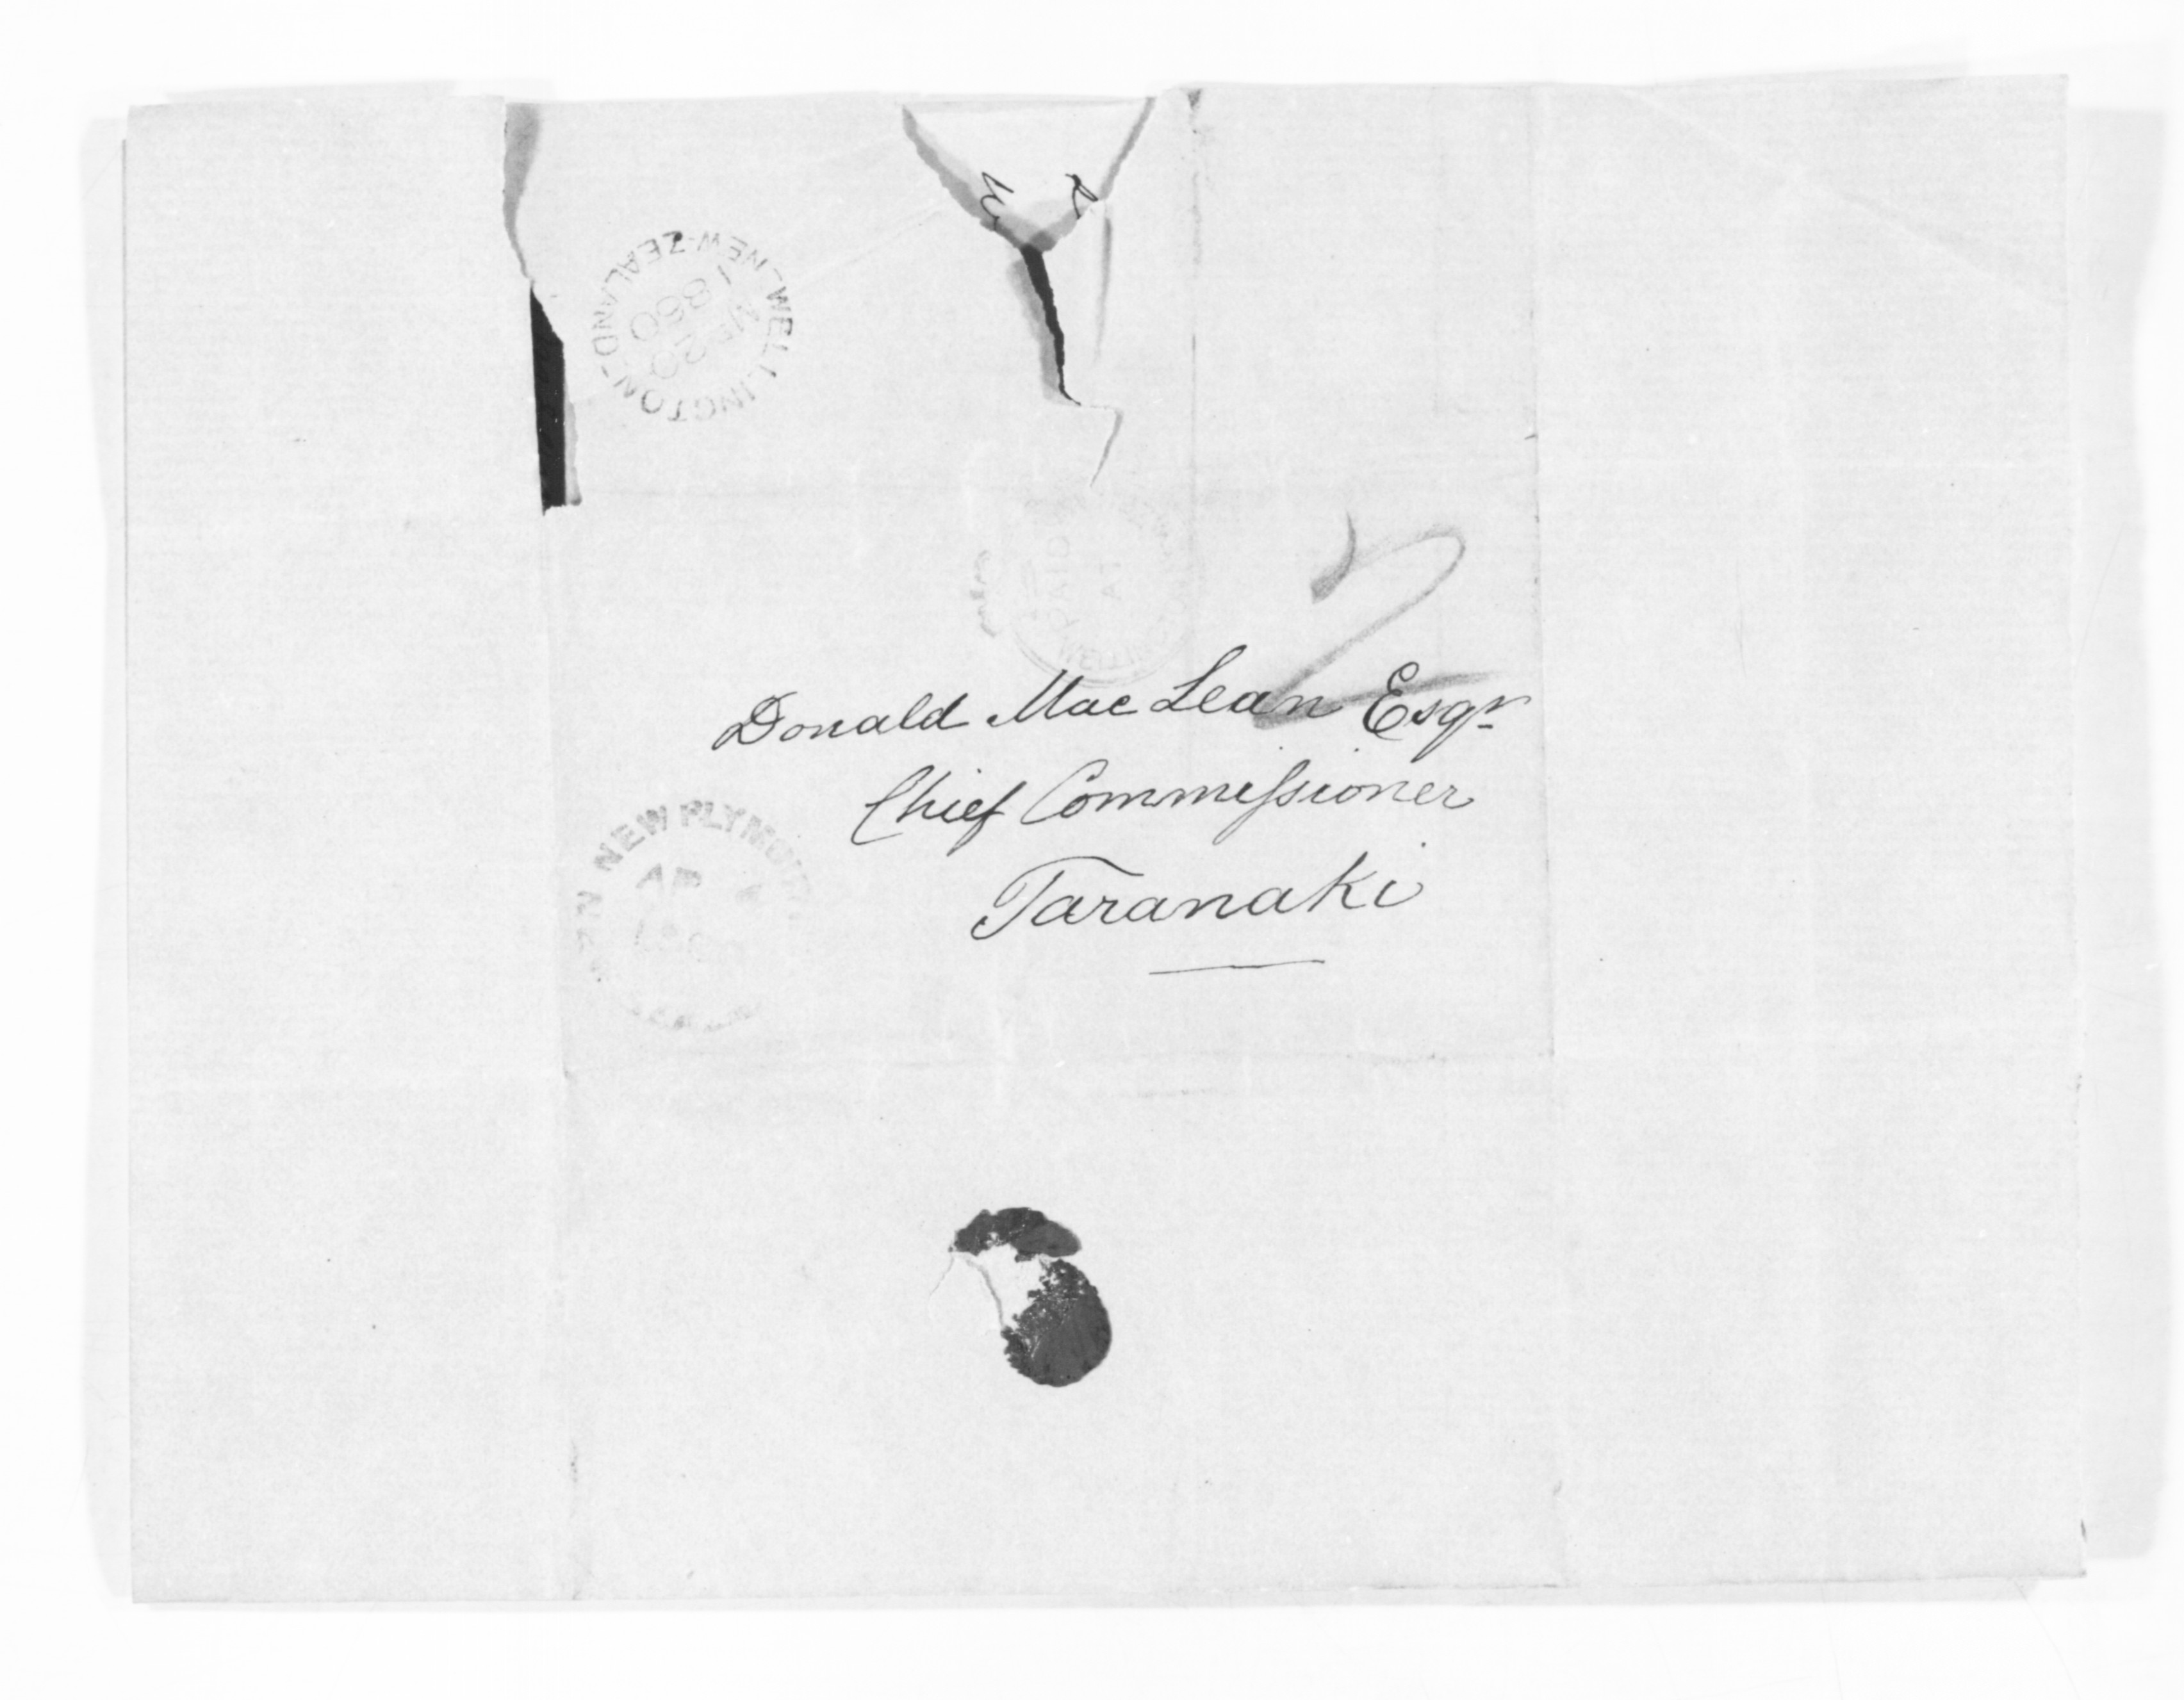 WELLINGTON - NEW-ZEALAND -
20
1860
PAID
AT
2
Donald Mac Lean Esqr
Chief Commissioner
Taranaki
NEW PLYMOUTH
AP